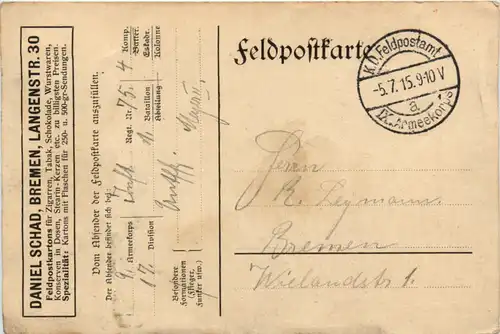 DANIEL SCHAD, BREMEN, LANGENSTR. 30
Feldpostkartons für Zigarren, Tabak, Schokolade, Wurstwaren,
Konserven in Dosen, Stearin-Kerzen etc. zu billigsten Preisen.
Spezialität: Kartons mit Flaschen für 250- u. 500-gr-Sendungen.
Vom Absender der Feldpostkarte auszufüllen.
Der Absender befindet sich bei:
9. Armeekorps
17. Division
Regt. Nr. 75.
Bataillon
Abteilung
4 Komp.
Batter.
Eskadr.
Kolonne
Besondere
Formationen
(Flieger,
Funker usw.)
Feldpostkarte
K.D. Feldpostamt
-5.7.15. 9-10V
a
IX. Armeekorps
Herrn
R. Legmann.
Bremen
Wielandstr 1.